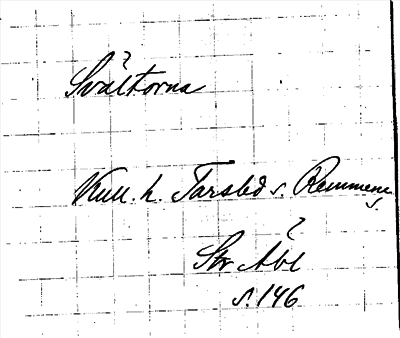 Svältorna
Kull. h. Tarsled s. Remmene
s.
Str Abl
s. 146